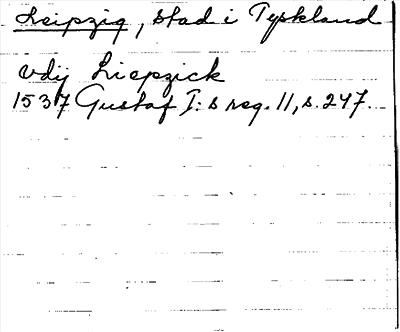 Leipzig, stad i Tyskland
vdij Liepzick
1537 Gustaf I:s reg. 11, s. 247.